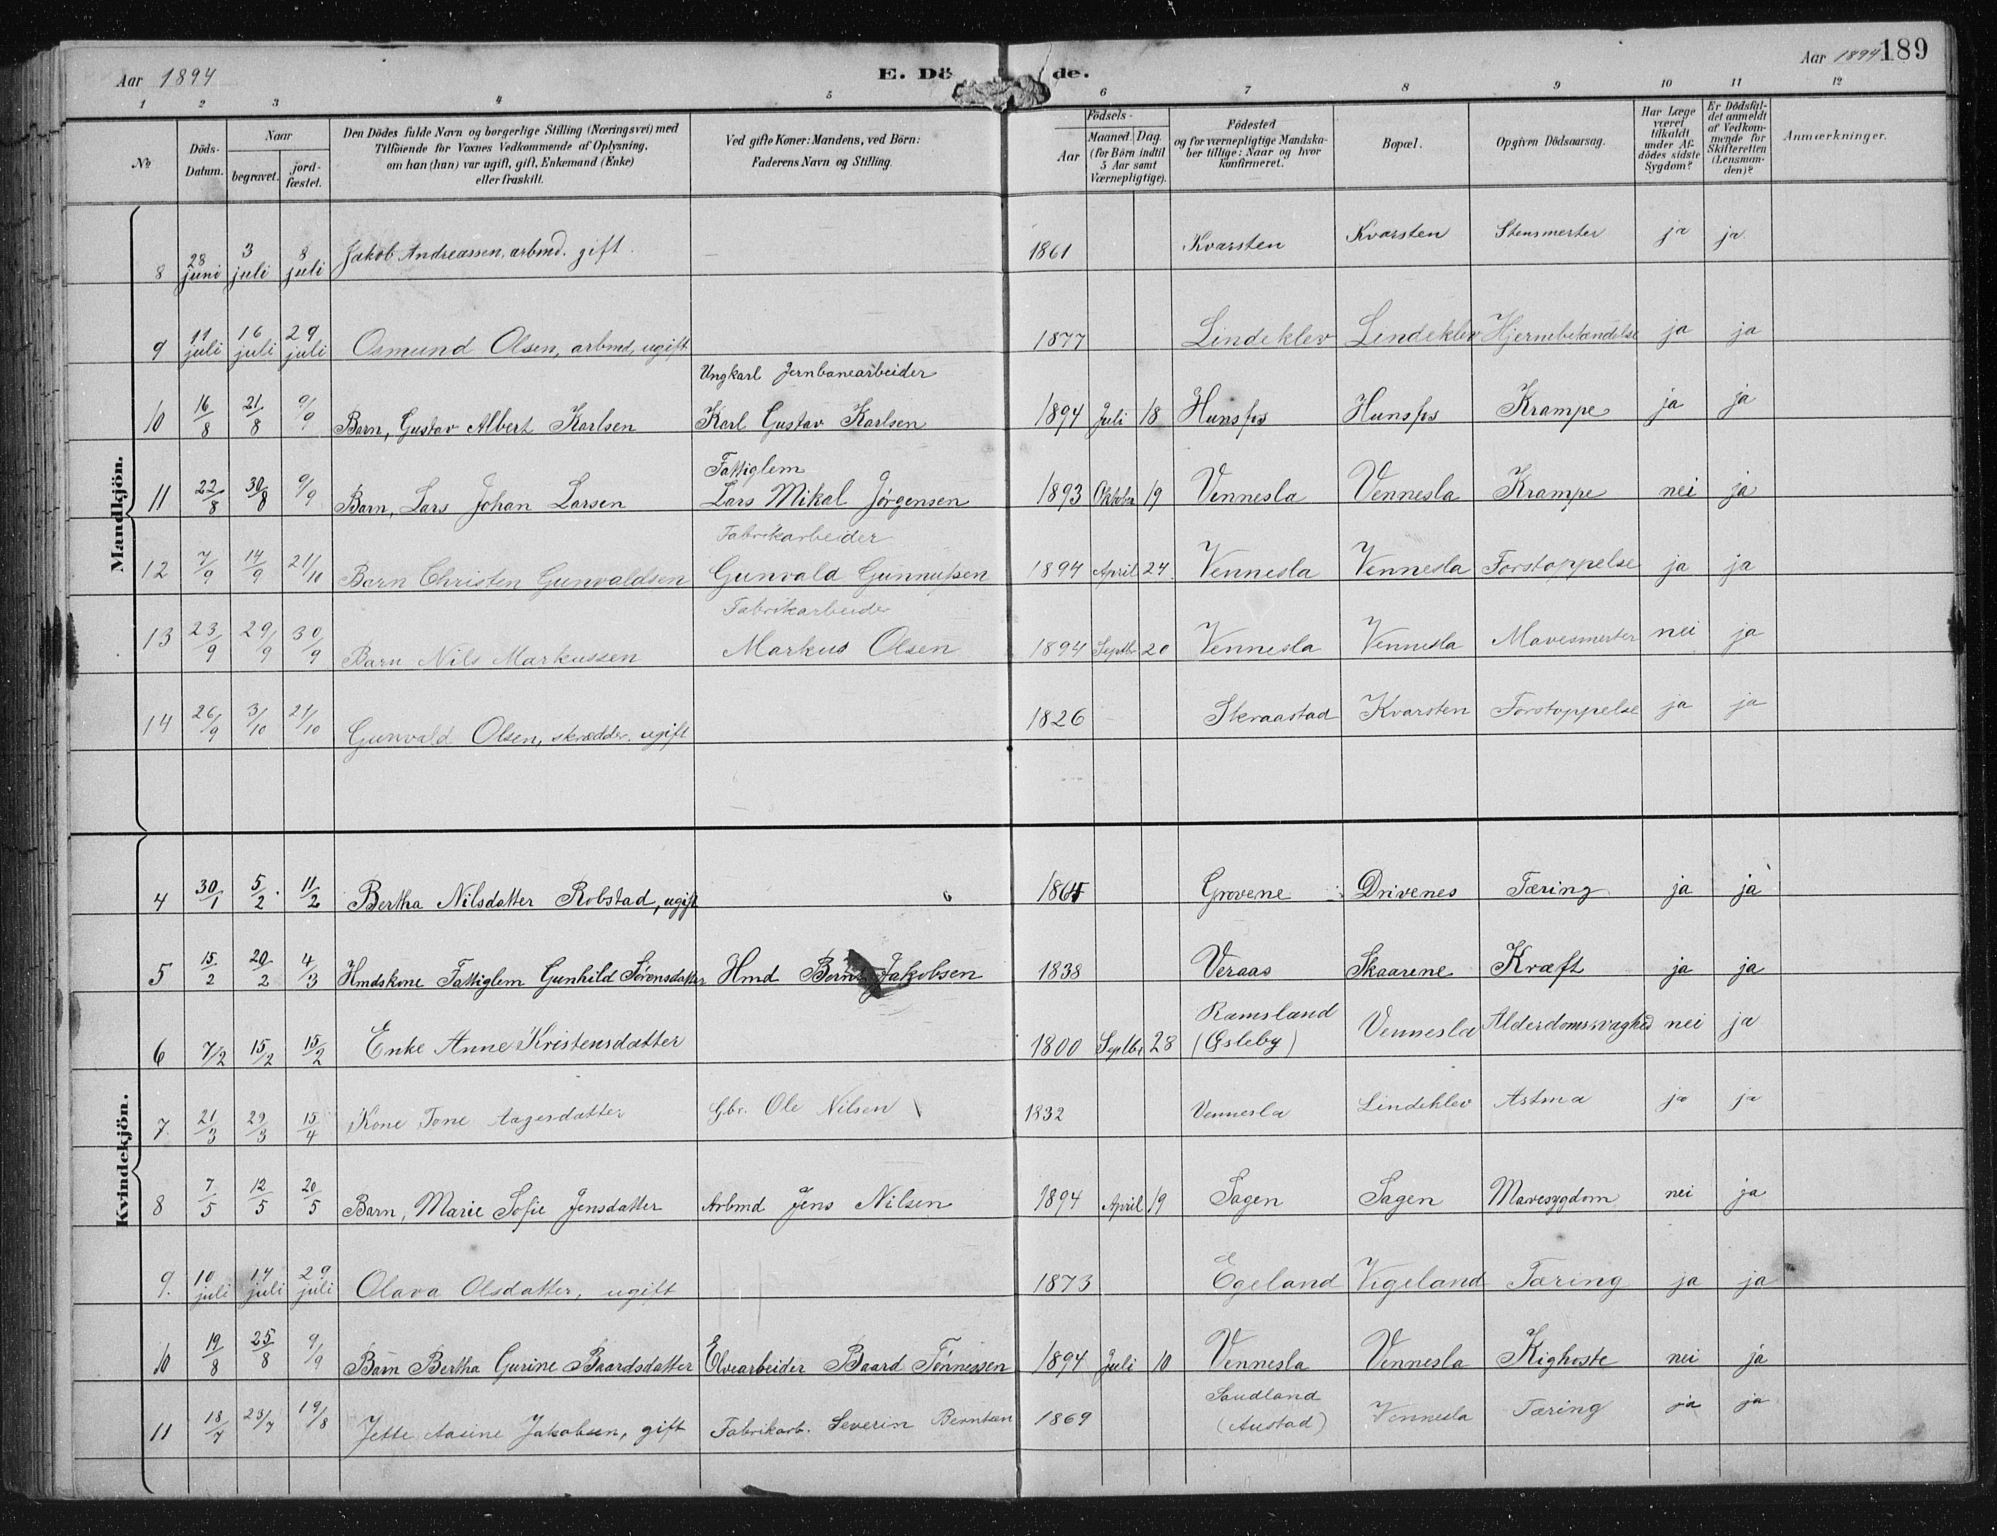 Aar 1894
E. Dö de.
Aar 1894 189
1 2 3 4 5 6 7 8 9 10 11 12
No
Döds-Datum.
Naar
begravet.
jord-fæstet.
Den Dödes fulde Navn og borgerlige Stilling (Næringsvei) med
Tilföiende for Voxnes Vedkommende af Oplysning,
om han (hun) var ugift, gift, Enkemand (Enke)
eller fraskilt.
Ved gifte Koner: Mandens, ved Börn:
Faderens Navn og Stilling.
Födsels-
Aar
Maaned. Dag.
(for Börn indtil
5 Aar samt
Værnepligtige).
Födested
og for værnepligtige Mandska-
ber tillige: Naar og hvor
konfirmeret.
Bopæl.
Opgiven Dödsaarsag.
Har Læge
været
tilkaldt
under Af-
dödes sidste
Sygdom?
Er Dödsfal-
det anmeldt
af Vedkom-
mende for
Skifteretten
(Lensman-
den)?
Anmærkninger.
Mandkjön.
8 28 juni 3 juli 8 juli Jakob Andreassen, arbmd. gift. 1861 Kvarsten Kvarsten Stensmerter ja ja
9 11 juli 16 juli 29 juli Osmund Olsen, arbmd, ugift 1877 Lindeklev Lindeklev Hjernebetændelse ja ja
Ungkarl Jernbanearbeider
10 16/8 21/8 9/9 Barn, Gustav Albert Karlsen Karl Gustav Karlsen 1894 Juli 18 Hunsfos Hunsfos Krampe ja ja
Fattiglem
11 22/8 30/8 9/9 Barn, Lars Johan Larsen Lars Mikal Jørgensen 1893 Oktober 19 Vennesla Vennesla Krampe nei ja
Fabrikarbeider
12 7/9 14/9 21/10 Barn Christen Gunvaldsen Gunvald Gunnufsen 1894 April 24 Vennesla Vennesla Forstoppelse ja ja
Fabrikarbeider
13 23/9 29/9 30/9 Barn Nils Markussen Markus Olsen 1894 Septbr 20 Vennesla Vennesla Mavesmerter nei ja
14 26/9 3/10 21/10 Gunvald Olsen, skrædder. ugift 1826 Skraastad Kvarsten Forstoppelse ja ja
Kvindekjön.
4 30/1 5/2 11/2 Bertha Nilsdatter Robstad, ugift Grovene Drivenes Tæring ja ja
5 15/2 20/2 4/3 Hmdskone Fattiglem Gunhild Sørensdatter Hmd Jakobsen 1838 Veraas Skaarene Kræft ja ja
6 7/2 15/2 15/2 Enke Anne Kristensdatter 1800 Septbr 28 Ramsland (Øsleby) Vennesla Alderdomssvaghed nei ja
7. 21/3 29/3 15/4 Kone Tone Aagesdatter Gbr. Ole Nilsen 1832 Vennesla Lindeklev Astma ja ja
8 7/5 12/5 20/5 Barn, Marie Sofie Jensdatter Arbmd Jens Nilsen 1894 April 19 Sagen Sagen Mavesygdom nei ja
9. 10 juli 17 juli 29 juli Olava Olsdatter, ugift 1873 Egeland Vigeland Tæring ja ja
10 19/8 25/8 9/9 Barn Bertha Gurine Baardsdatter Elvearbeider Baard Tønnessen 1894 Juli 10 Vennesla Vennesla Kighoste nei ja
11 18/7 23/7 19/8 Jette Aasine Jakobsen, gift Fabrikarb. Severin Berntsen 1869 Saudland (Austad) Vennesla Tæring ja ja